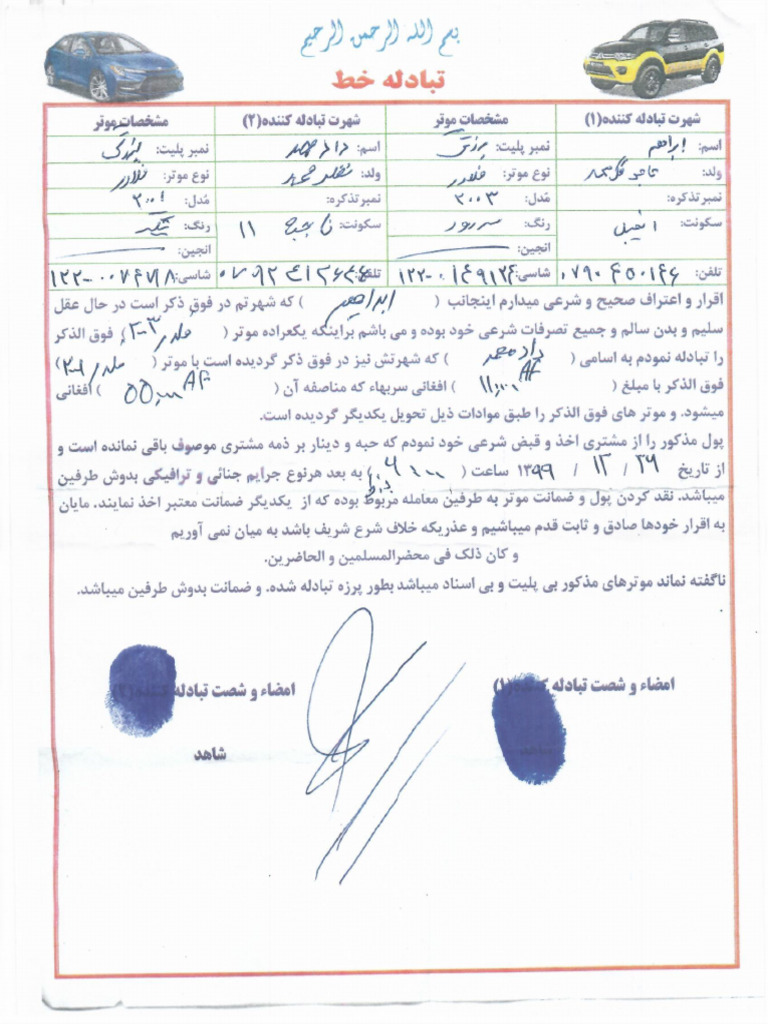 بسم الله الرحمن الرحیم
تبادله خط
شهرت تبادله کننده(۱) مشخصات موتر شهرت تبادله کننده(۲) مشخصات موتر
اسم: ابراهیم نمبر پلیت: اسم: داد محمد نمبر پلیت:
ولد: حاجی گل محمد نوع موتر: فلادر ولد: نظر محمد نوع موتر: فلادر
نمبر تذکره: مُدل: ۲۰۰۳ نمبر تذکره: مُدل: ۲۰۰۱
سکونت: انجیل رنگ: سکونت: ناحیه ۱۱ رنگ:
انجین: انجین:
تلفن: شاسی: تلفن: شاسی:
اقرار و اعتراف صحیح و شرعی میدارم اینجانب ( ابراهیم ) که شهرتم در فوق ذکر است در حال عقل
سلیم و بدن سالم و جمیع تصرفات شرعی خود بوده و می باشم براینکه یکعراده موتر ( فلادر ۲۰۰۳ ) فوق الذکر
را تبادله نمودم به اسامی ( داد محمد ) که شهرتش نیز در فوق ذکر گردیده است با موتر ( فلادر ۲۰۰۱ )
فوق الذکر با مبلغ ( ۱۱۰۰۰ AF ) افغانی سربهاء که مناصفه آن ( ۵۵۰۰ AF ) افغانی
میشود. و موتر های فوق الذکر را طبق موادات ذیل تحویل یکدیگر گردیده است.
پول مذکور را از مشتری اخذ و قبض شرعی خود نمودم که حبه و دینار بر ذمه مشتری موصوف باقی نمانده است و
از تاریخ ۲۶ / ۱۲ / ۱۳۹۹ ساعت ( ) به بعد هرنوع جرایم جنائی و ترافیکی بدوش طرفین
میباشد. نقد کردن پول و ضمانت موتر به طرفین معامله مربوط بوده که از یکدیگر ضمانت معتبر اخذ نمایند. مایان
به اقرار خودها صادق و ثابت قدم میباشیم و عذریکه خلاف شرع شریف باشد به میان نمی آوریم
و کان ذلک فی محضرالمسلمین و الحاضرین.
ناگفته نماند موترهای مذکور بی پلیت و بی اسناد میباشد بطور پرزه تبادله شده. و ضمانت بدوش طرفین میباشد.
امضاء و شصت تبادله کننده(۱) امضاء و شصت تبادله کننده(۲)
شاهد شاهد